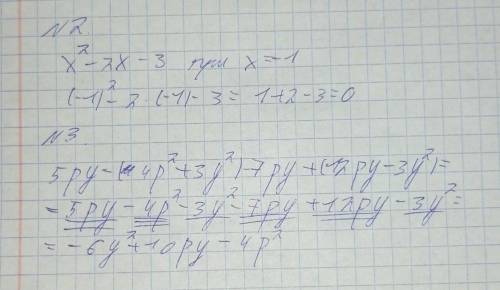 №2
x² - 2x - 3 при x = -1
(-1)² - 2 · (-1) - 3 = 1 + 2 - 3 = 0
№3.
5py - (4p² + 3y²) - 7py + (12py - 3y²) =
= 5py - 4p² - 3y² - 7py + 12py - 3y² =
= -6y² + 10py - 4p²